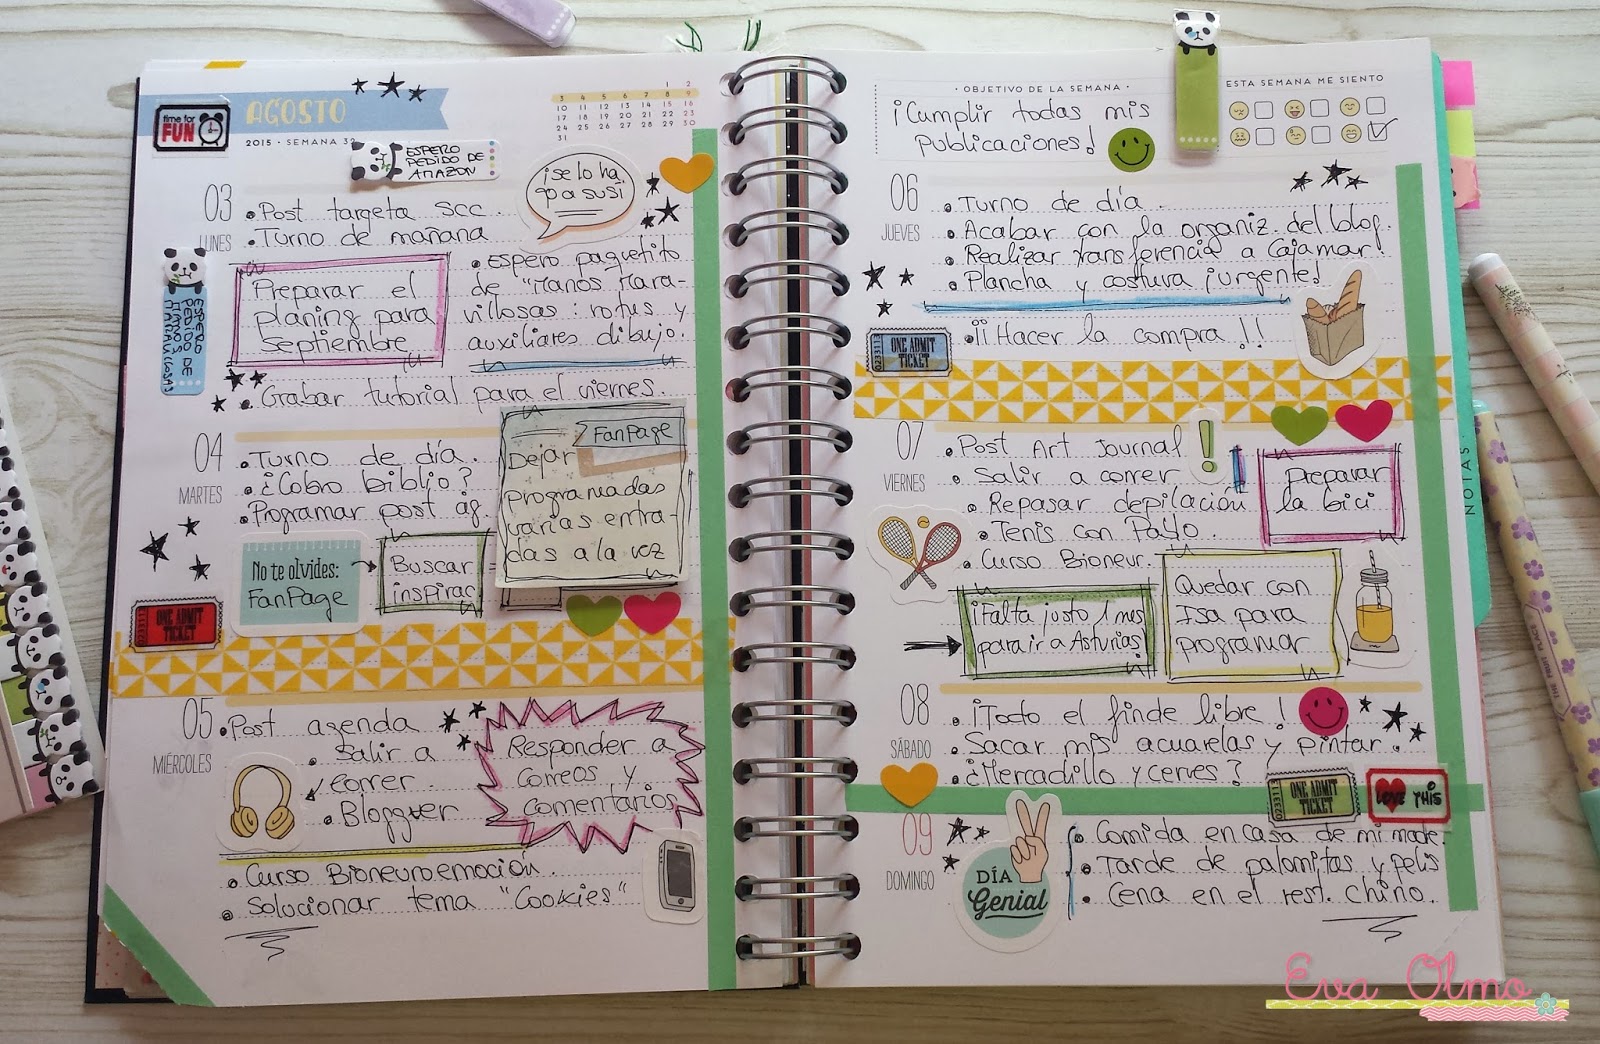 time for
FUN
AGOSTO
2015 • SEMANA 32
1 2
3 4 5 6 7 8 9
10 11 12 13 14 15 16
17 18 19 20 21 22 23
24 25 26 27 28 29 30
31
ESPERO
PEDIDO DE
AMAZON
¡se lo ha
pasusi
03
LUNES
• Post targeta scc.
• Turno de mañana
ESPERO
PEDIDO DE
MANOS
MARAVILLOSAS
Preparar el
planing para
septiembre
• Espero paquetito
de "Manos Mara-
villosas: rotus y
auxiliares dibujo.
• Grabar tutorial para el viernes.
04
MARTES
• Turno de día.
• ¿Cobro biblio?
• Programar post ag.
FanPage
Dejar
programadas
varias entra-
das a la vez
No te olvides:
FanPage
Buscar
inspirac
ONE ADMIT
TICKET
05
MIÉRCOLES
• Post agenda
• Salir a
correr
• Blogguer
Responder a
correos y
comentarios
• Curso Bioneuroemoción.
• Solucionar tema "Cookies"
• OBJETIVO DE LA SEMANA •
¡Cumplir todas mis
publicaciones!
ESTA SEMANA ME SIENTO
06
JUEVES
• Turno de día.
• Acabar con la organiz. del blog.
• Realizar transferencia a Cajamar!
• Plancha y costura ¡urgente!
• ¡¡¡Hacer la compra!!
0233113
ONE ADMIT
TICKET
07
VIERNES
• Post Art Journal
• Salir a correr
• Repasar depilación
• Tenis con Pablo.
• Curso Bioneur.
Preparar
la bici
¡Falta justo 1 mes
para ir a Asturias!
Quedar con
Isa para
programar
08
SÁBADO
• ¡Todo el finde libre!
• Sacar mis acuarelas y pintar.
• ¿Mercadillo y cerves?
0233113
ONE ADMIT
TICKET
LOVE THIS
09
DOMINGO
DÍA
Genial
• Comida en casa de mi madre.
• Tarde de palomitas y pelis
• Cena en el rest. chino.
NOTAS
THE FRUIT PLACE
Eva Olmo